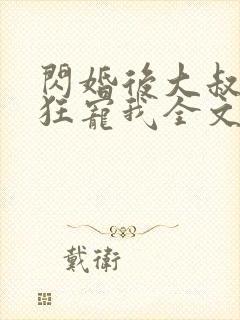 閃婚後大叔
狂寵我全文
戴衛